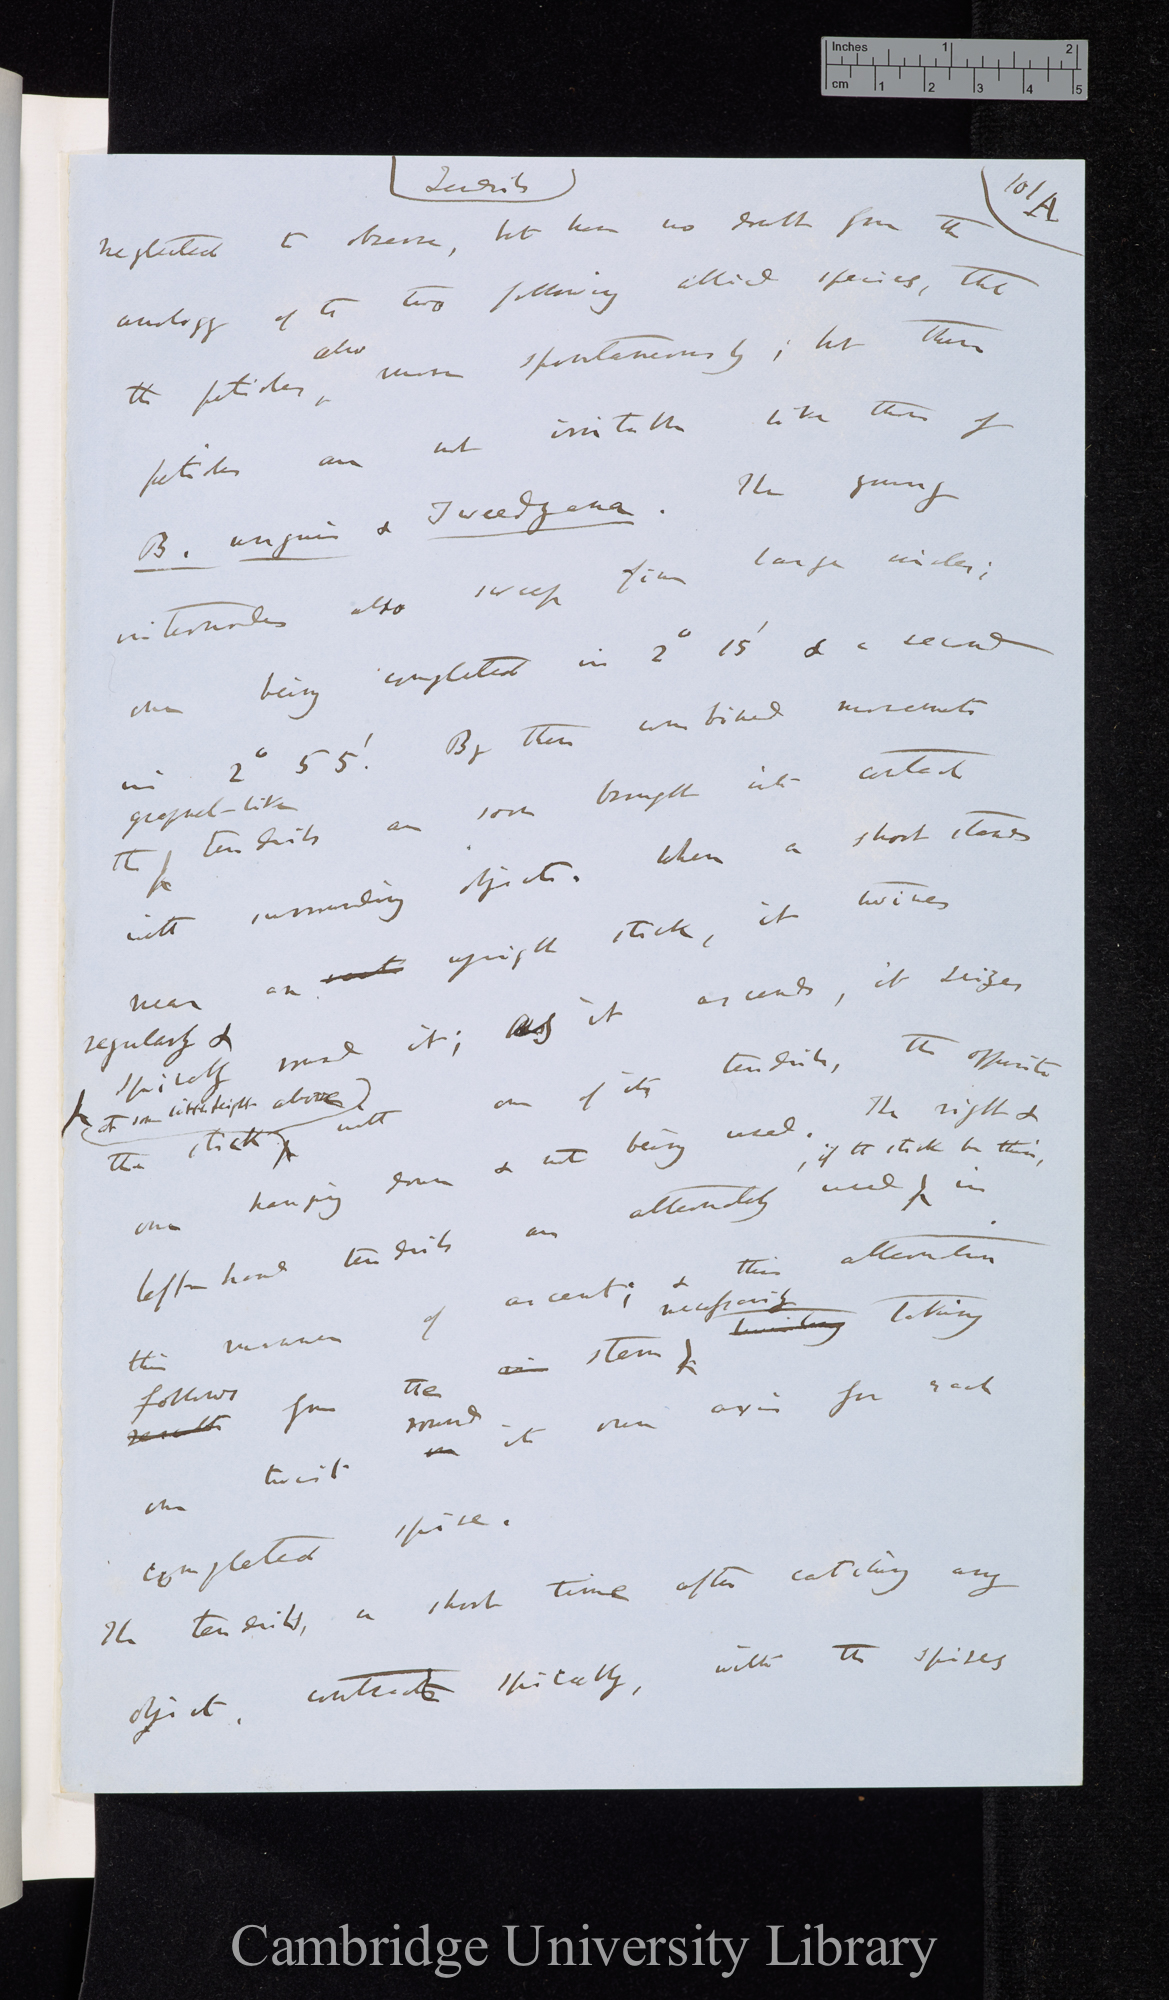 Inches 1 2
cm 1 2 3 4 5
Tendrils
101/A
neglected to observe, but have no doubt from the
analogy of the two following allied species, that
also
the petioles, move spontaneously; but these
petioles are not irritable like those of
B. unguis & Tweedyana. The young
internodes also sweep fine large circles;
one being completed in 2° 15' & a second
in 2° 55'. By these combined movements
grapnel-like
the tendrils are soon brought into contact
with surrounding objects. When a short stands
near an upright stick, it twines
regularly &
spirally round it; as it ascends, it seizes
(at some little height above)
the stick with one of its tendrils, the opposite
one hanging down & not being used. The right &
, if the stick be thin,
left-hand tendrils are alternately used in
this manner of ascent; & this alternation
necessarily
follows from the stem twisting taking
results
round
one twist on its own axis for each
completed spire.
The tendrils, a short time after catching any
object, contracts spirally, with the spires
Cambridge University Library